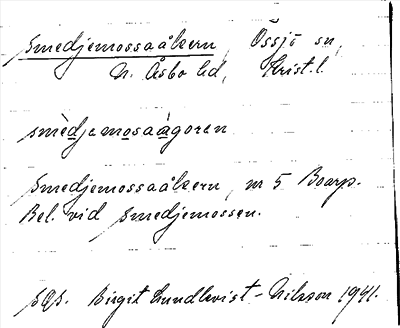 Smedjemossaåkern, Össjö sn,
N. Åsbo hd, Krist. l.
smèdjemosaågoren
Smedjemossaåkern, nr 5 Boarp.
Bel. vid Smedjemossen.
Birgit Lundkvist-Nilsson 1941.